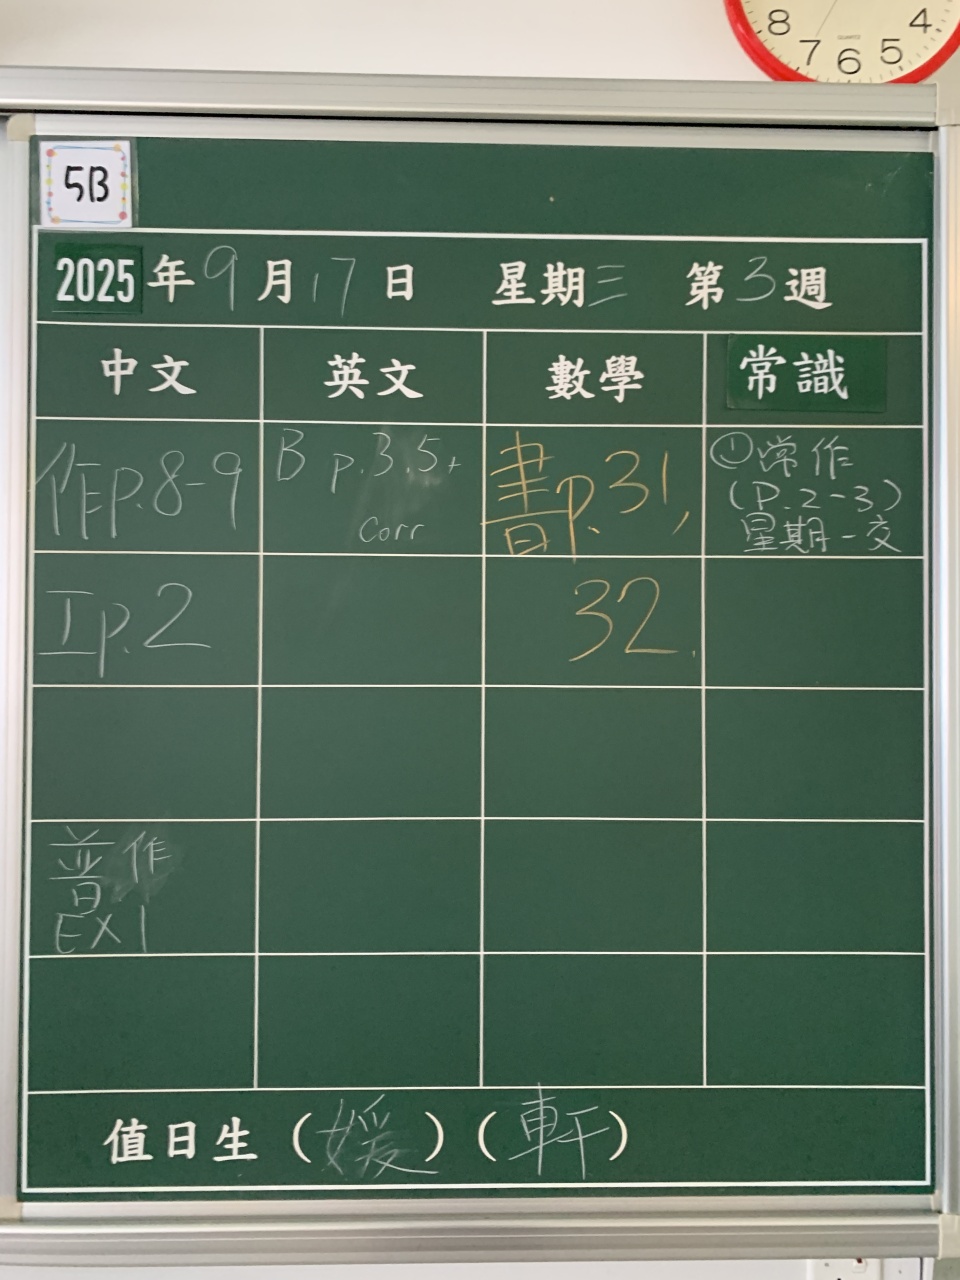 8 7 6 5 4
QUARTZ
5B
2025年9月17日 星期三 第3週
中文 英文 數學 常識
作p.8-9
B p.3.5+
corr
書p.31,
①常作
(P.2-3)
星期一交
工p.2
32.
普作
EX1
值日生(媛)(軒)